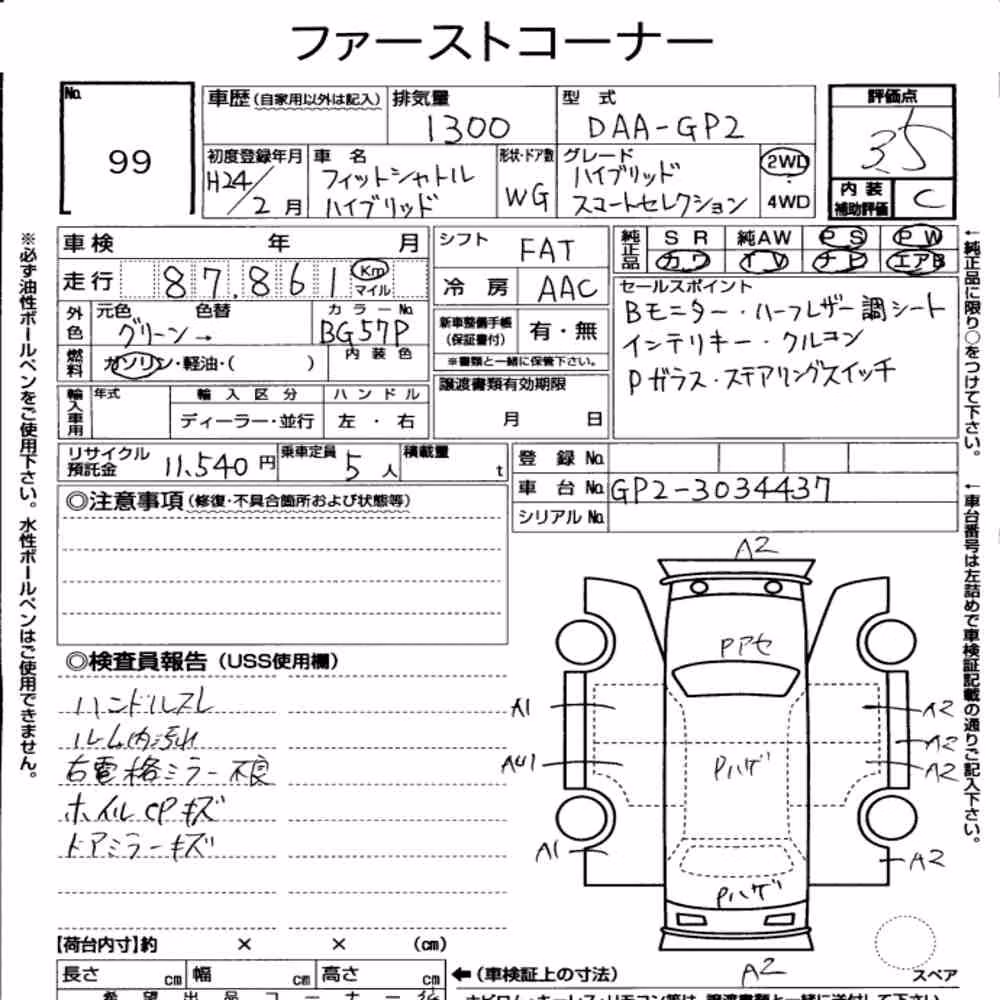 ファーストコーナー
No.
99
車歴(自家用以外は記入)
排気量
1300
型 式
DAA-GP2
評価点
3.5
初度登録年月
H24/2月
車 名
フィットシャトル
ハイブリッド
形状・ドア数
WG
グレード
ハイブリッド
スマートセレクション
2WD
4WD
内 装
補助評価
C
車検 年 月
シフト
FAT
純正品
SR 純AW PS PW
カワ TV ナビ エアB
走行
87,861
Km
マイル
冷 房
AAC
セールスポイント
Bモニター・ハーフレザー調シート
インテリキー・クルコン
Pガラス・ステアリングスイッチ
外色
元色 色替
グリーン→
カラーNo.
BG57P
新車整備手帳
(保証書付)
有・無
※書類と一緒に保管下さい。
燃料
ガソリン・軽油・( )
内 装 色
譲渡書類有効期限
月 日
輸入車用
年式
輸 入 区 分
ディーラー・並行
ハ ン ド ル
左 ・右
リサイクル
預託金
11,540円
乗車定員
5人
積載量
t
登 録 No.
車 台 No.
GP2-3034437
シリアル No.
◎注意事項(修復・不具合箇所および状態等)
◎検査員報告(USS使用欄)
ハンドルスレ
ルーム内汚れ
右電格ミラー不良
ホイルCPキズ
ドアミラーキズ
A2
Pアセ
A1
A2
A2
AU1
Pハゲ
A2
A1
A2
Pハゲ
A2
スペア
【荷台内寸】約 × × (cm)
長さ cm 幅 cm 高さ cm
←(車検証上の寸法)
※必ず油性ボールペンをご使用下さい。水性ボールペンはご使用できません。
←純正品に限り○をつけて下さい。
←車台番号は左詰めで車検証記載の通りご記入下さい。